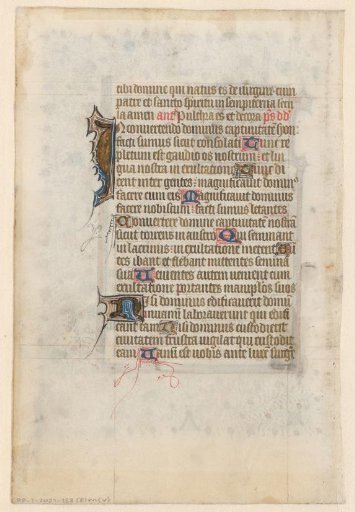 tibi domine qui natus es de virgine cum
patre et sancto spiritu in sempiterna secu
la amen ant Pulchra es et decora ps dd
In convertendo dominus captivitatē syon
facti sumus sicut consolati Tunc re
pletum est gaudio os nostrum: et lin
gua nostra in exultatione Tunc di
cent inter gentes: magnificavit domin⁹
facere cum eis Magnificavit dominus
facere nobiscum: facti sumus letantes
Convertere domine captivitatē nostrā
sicut torrens in austro Qui seminant
in lacrimis: in exultatione metent Eun
tes ibant et flebant mittentes semina
sua Venientes autem venient cum
exultatione portantes manipulos suos
Nisi dominus edificaverit domū
in vanum laboraverunt qui edifi
cant eam Nisi dominus custodierit
civitatem frustra vigilat qui custodit
eam Vanū est vobis ante lucē surgere